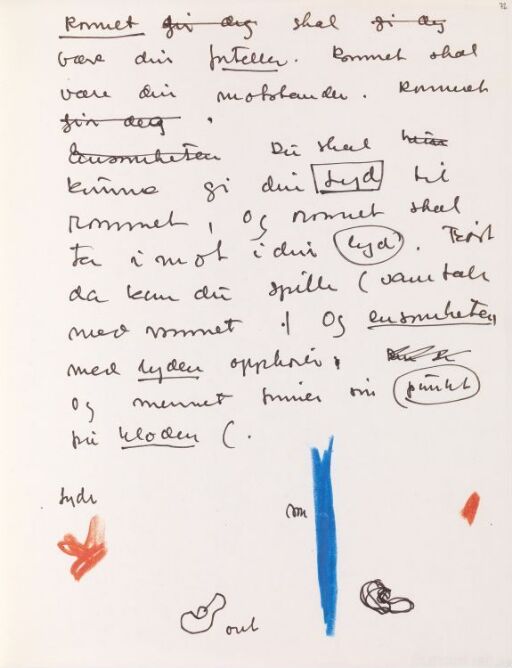 31
Rommet gir deg skal gi deg
være din forteller. Rommet skal
være din motstander. Rommet
gir deg.
Ensomheten Du skal
kunne gi din Lyd til
rommet, og rommet skal
ta i mot i din lyd. Først
da kan du spille (samtale
med rommet.) Og ensomheten
med lyden opphører,
og mennet finner sin punkt
på kloden (.
Lyde
rom
out